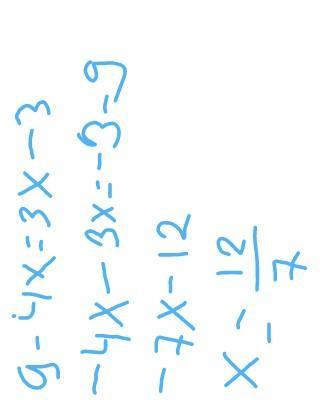 9-4x=3x-3
-4x-3x=-3-9
-7x-12
x=12/7